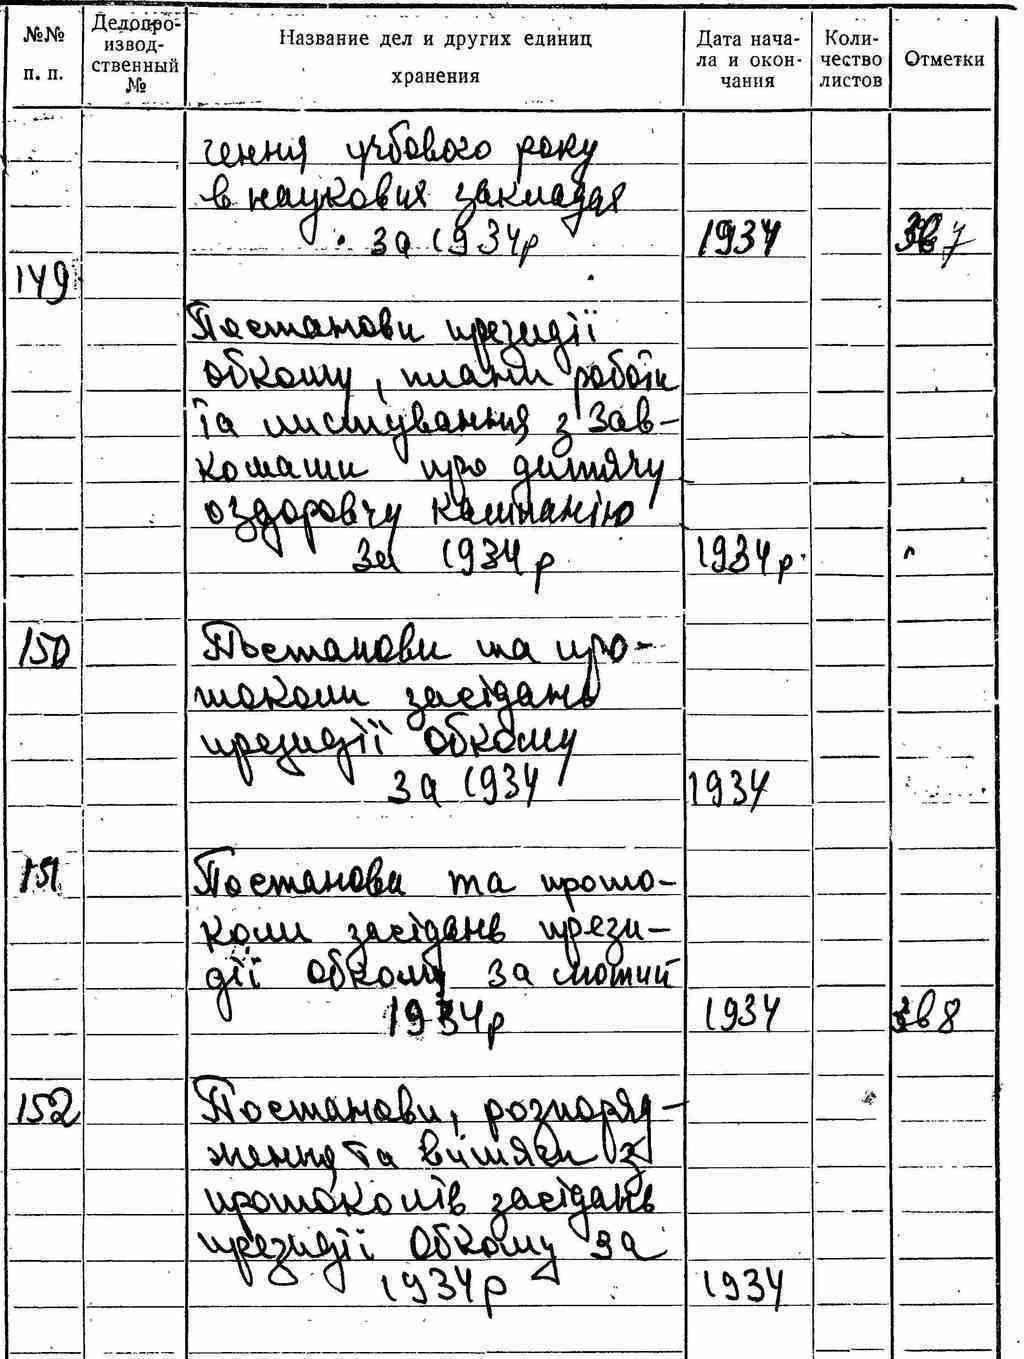 №№ п. п.
Делопро-
извод-
ственный
№
Название дел и других единиц
хранения
Дата нача-
ла и окон-
чания
Коли-
чество
листов
Отметки
чення учбового року
в наукових закладах
за 1934р 1934
149
Постанови президії
обкому, плани роботи
та листування з Зав-
комами про дитячу
оздоровчу кампанію
за 1934 р 1934 р.
150 Постанови та про-
токоли засідань
президії обкому
за 1934 1934
151 Постанови та прото-
коли засідань прези-
дії обкому за лютий
1934р 1934 зв 8
152 Постанови, розпоряд-
ження та витяги з
протоколів засідань
президії обкому за
1934р 1934